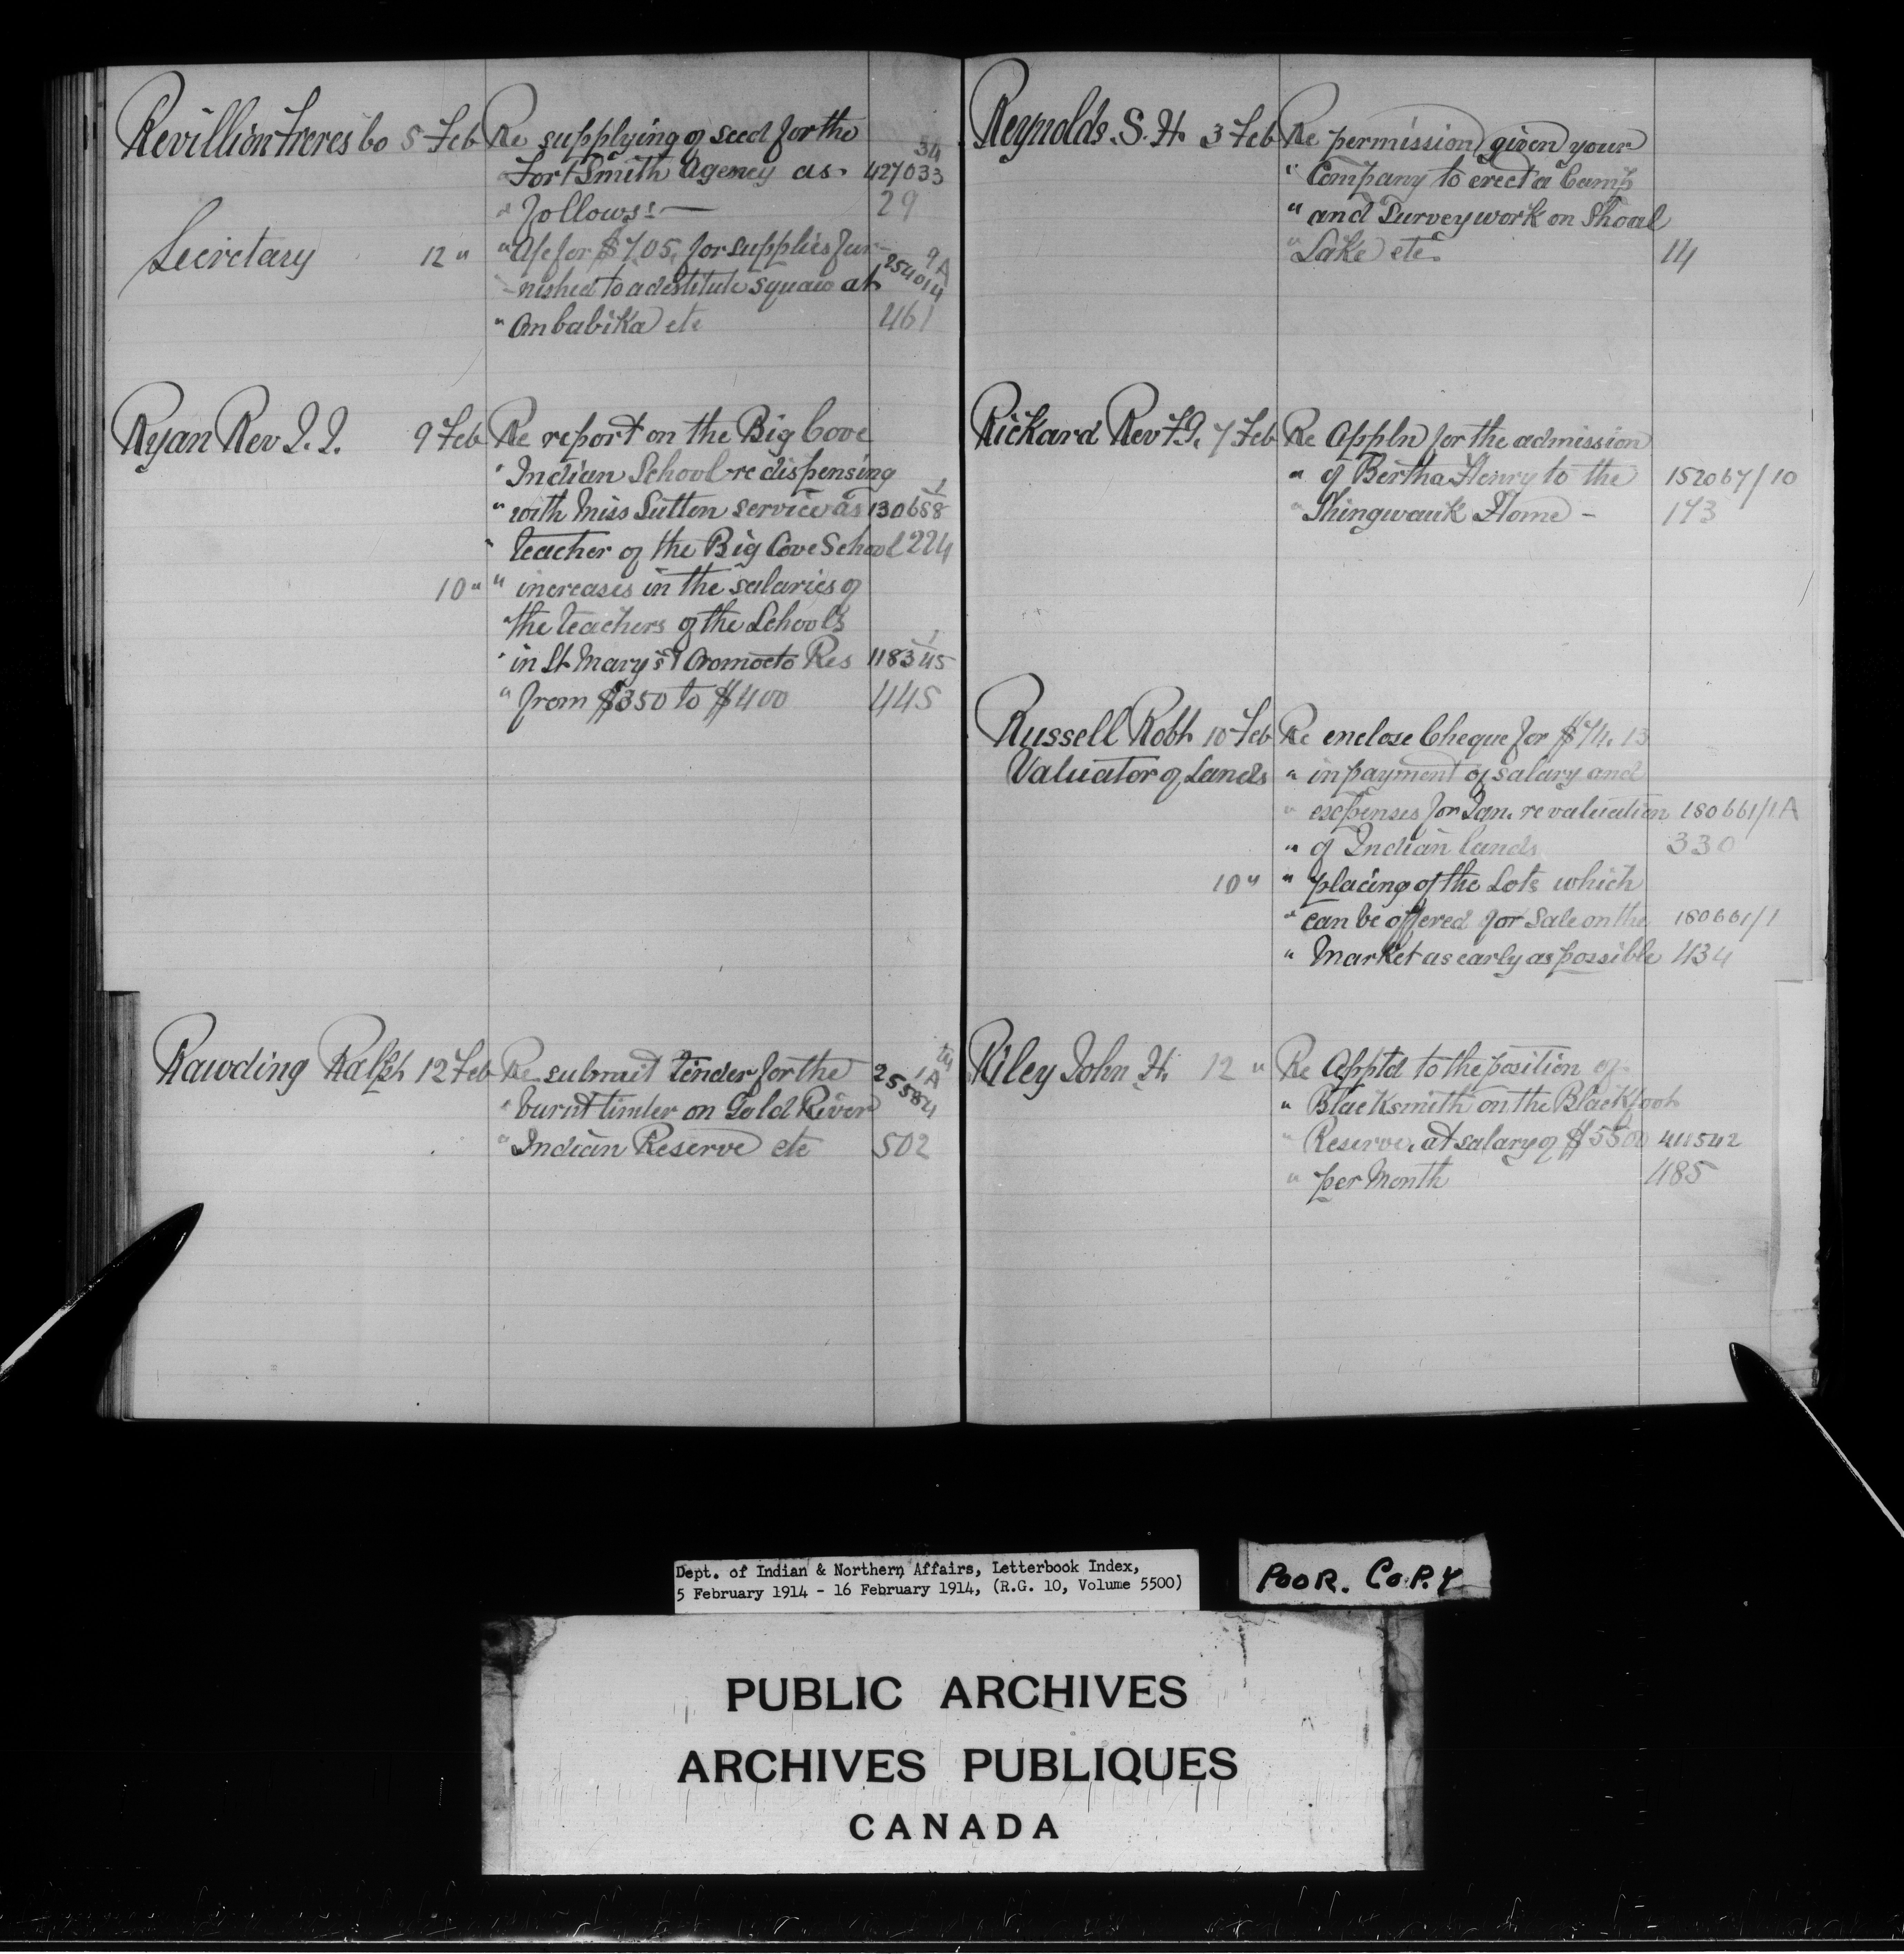 Revillion Freres Co 5 Feb Re supplying of seed for the 34
" Fort Smith Agency as 427033
" follows:— 29
Secretary 12 " " A/c for $7.05, for supplies fur- 9A
-nished to a destitute squaw at 254014
" Ombabika etc 461
Ryan Rev J. J. 9 Feb Re report on the Big Cove
" Indian School re dispensing 1
" with Miss Sutton service as 130658
" teacher of the Big Cove School 224
10 " " increases in the salaries of
" the teachers of the Schools 1
" in St Mary's & Oromocto Res 118345
" from $350 to $400 445
Rawding Ralph 12 Feb Re submit tender for the 25584 1A
" burnt timber on Gold River
" Indian Reserve etc 502
Reynolds. S. H. 3 Feb Re permission given your
" Company to erect a Camp
" and Survey work on Shoal
" Lake etc. 14
Rickard Rev F.J. 7 Feb Re Appln for the admission
" of Bertha Henry to the 152067/10
" Shingwauk Home - 173
Russell Robt 10 Feb Re enclose Cheque for $74.13
Valuator of Lands " in payment of salary and
" expenses for Jan. re valuation 180661/1A
" of Indian lands 330
10 " " placing of the Lots which
" can be offered for Sale on the 180661/1
" Market as early as possible 434
Riley John H. 12 " Re Apptd to the position of
" Blacksmith on the Blackfoot
" Reserve, at salary of $5500 411542
" per Month 485
Dept. of Indian & Northern Affairs, Letterbook Index,
5 February 1914 - 16 February 1914, (R.G. 10, Volume 5500)
POOR. COPY
PUBLIC ARCHIVES
ARCHIVES PUBLIQUES
CANADA